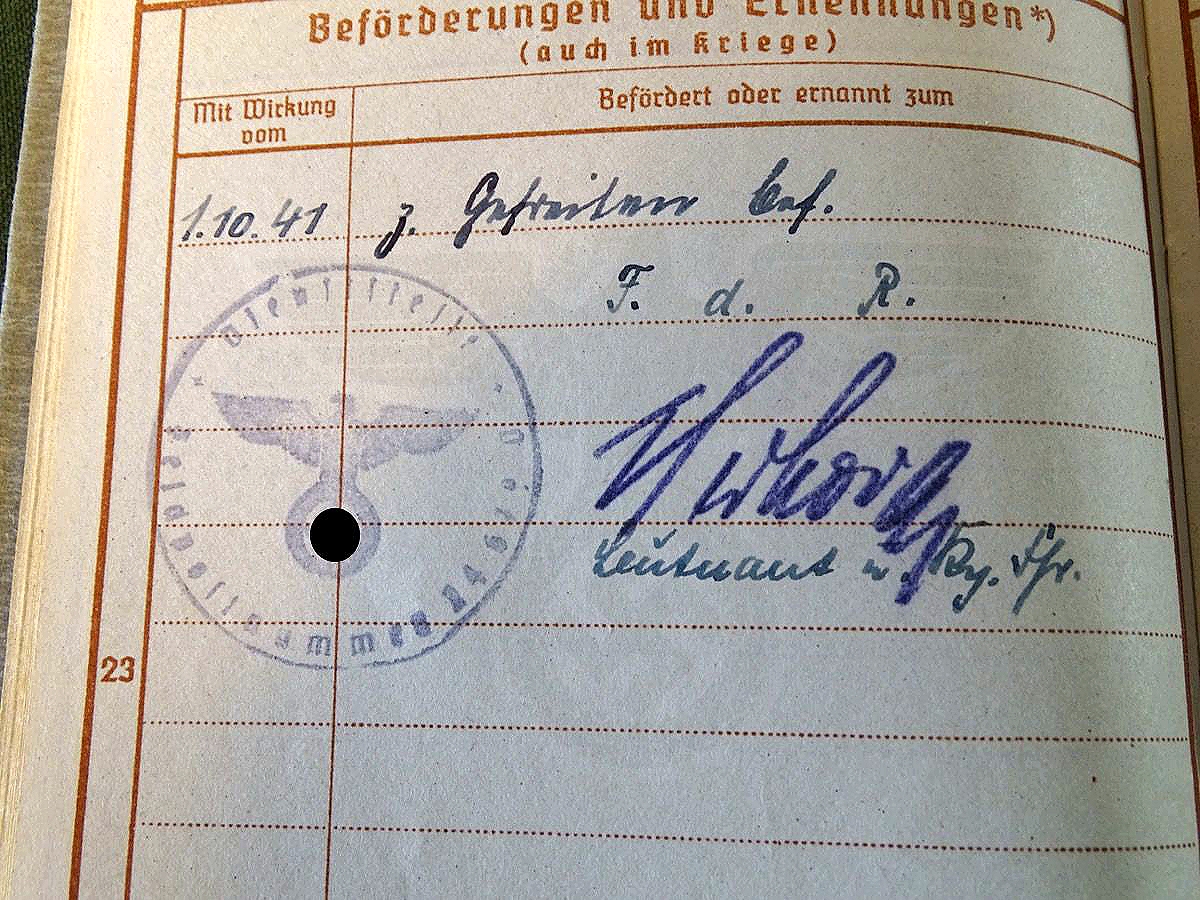 Beförderungen und Ernennungen*)
(auch im Kriege)
Mit Wirkung
vom
Befördert oder ernannt zum
1.10.41 z. Gefreiten bef.
F. d. R.
Leutnant u. Kp. Fhr.
Dienststelle
Feldpostnummer
23